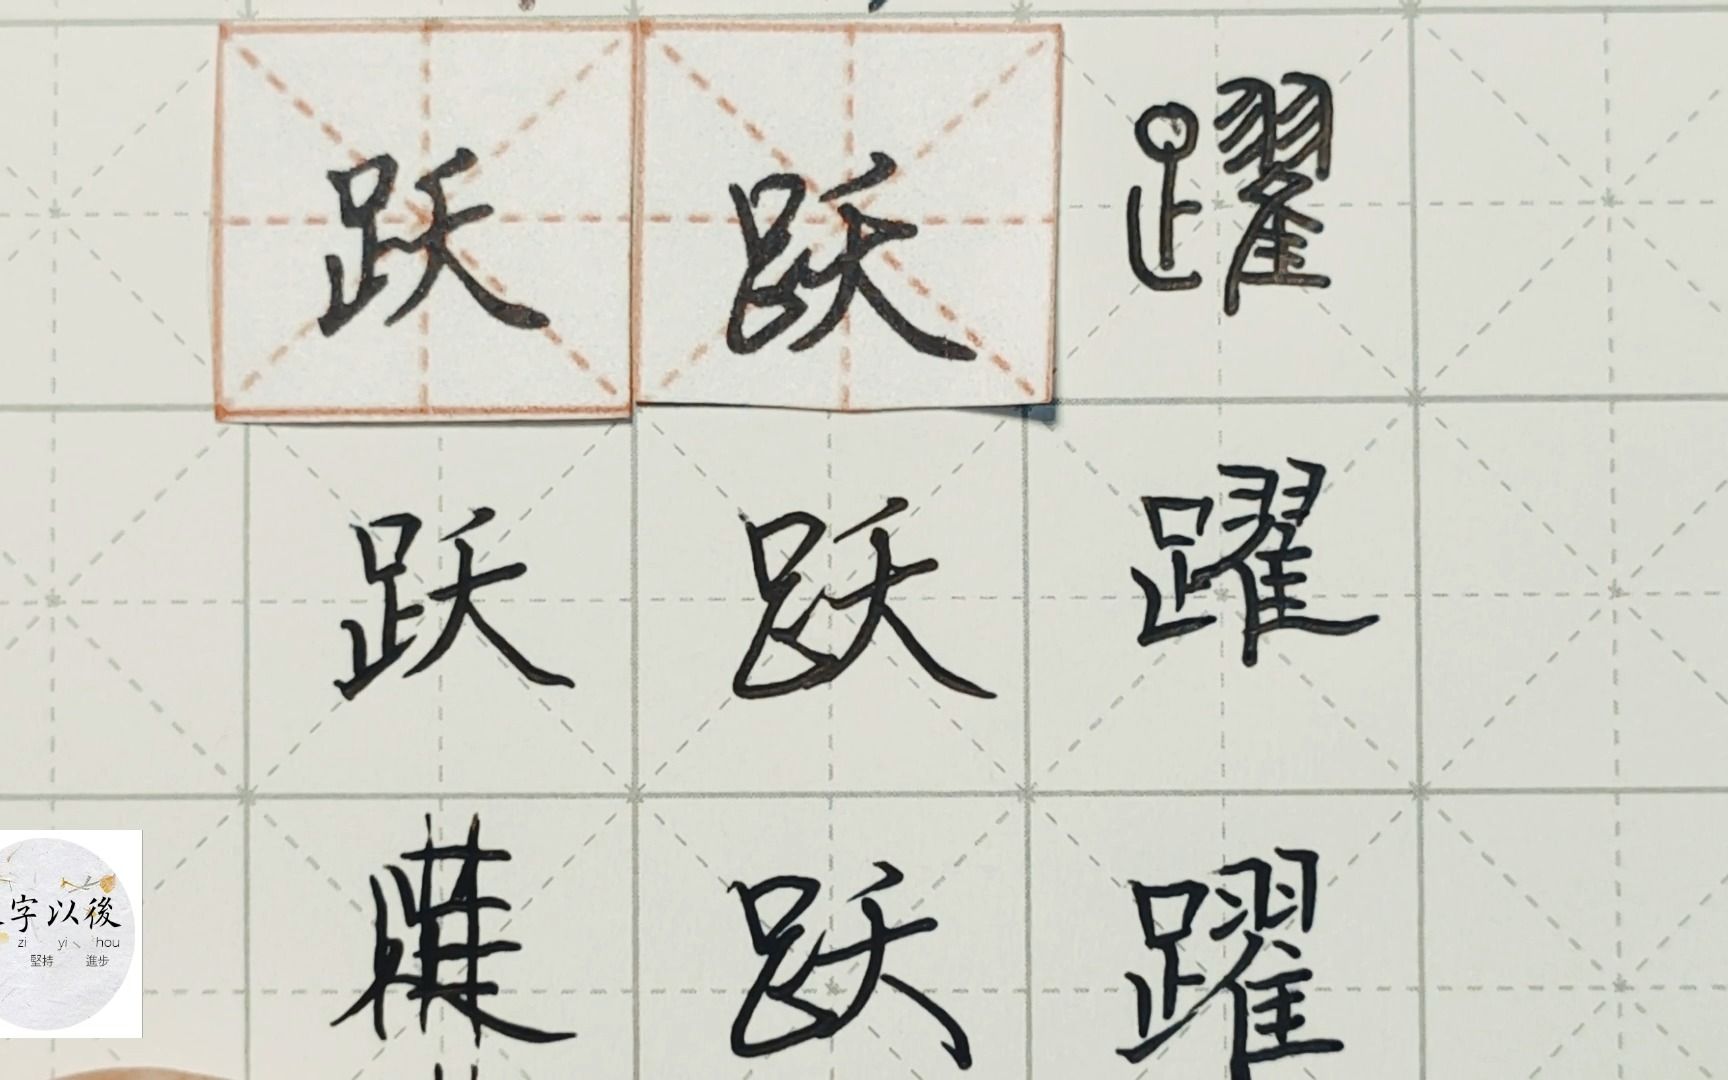 跃 跃 躍
跃 跃 躍
跃 躍
字以後
zi yi hou
堅持 進步